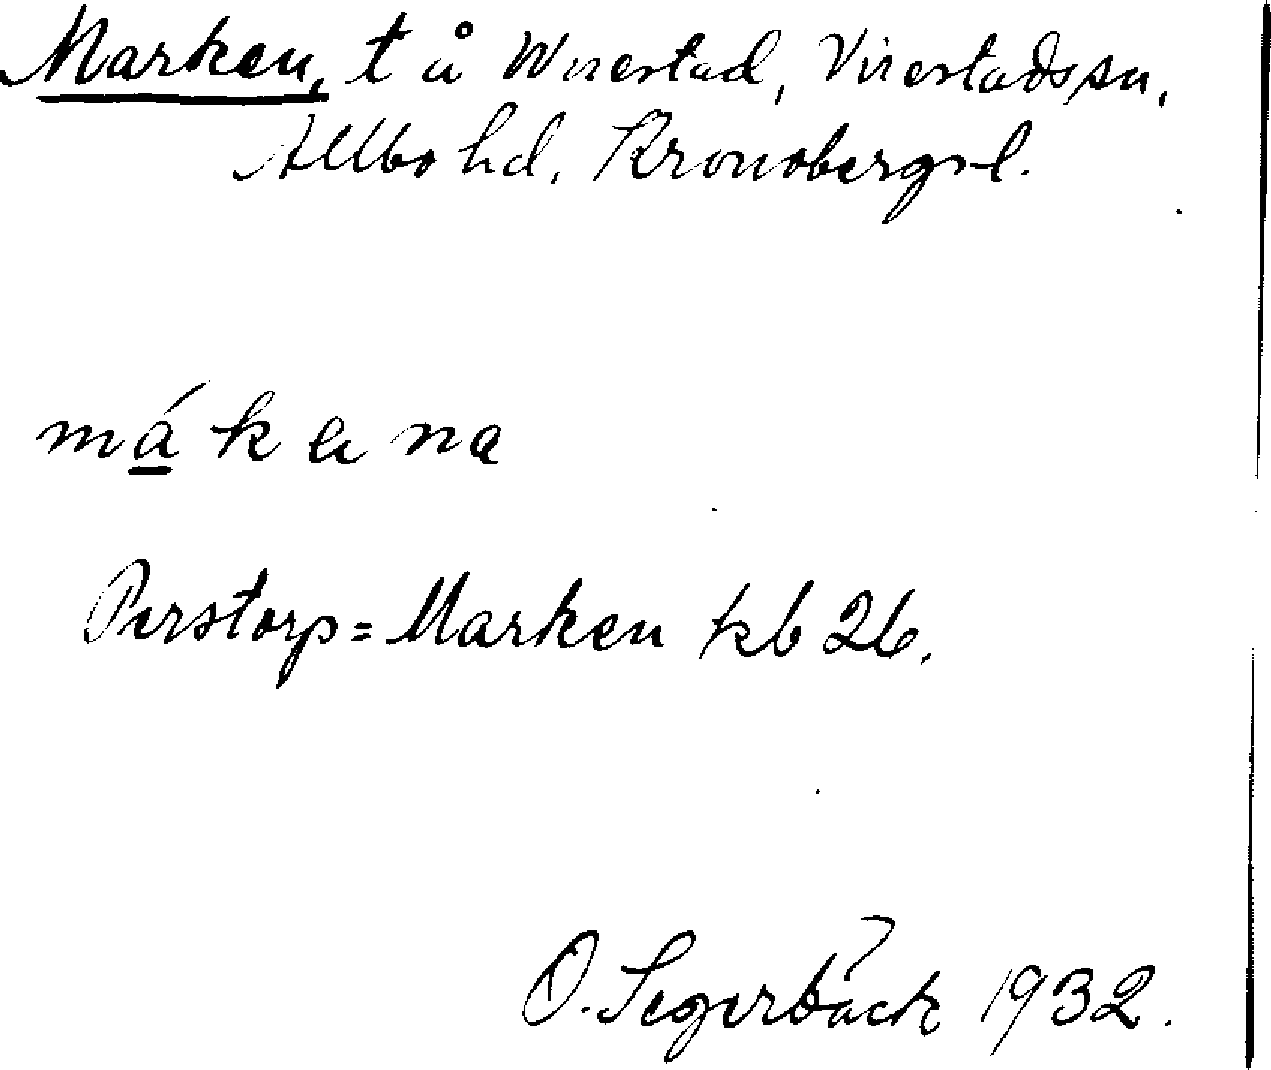 Marken, t å Wirestad, Virestads sn,
Allbo hd, Kronobergs l.
mákana
Perstorp=Marken kb 26.
O. Segerbäck 1932.